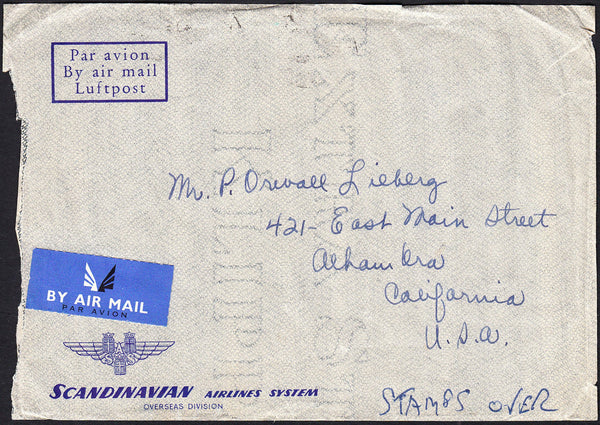 Par avion
By air mail
Luftpost
Mr. P. Orwall Lieberg
421- East Main Street
Alhambra
California
U.S.A.
BY AIR MAIL
PAR AVION
SCANDINAVIAN AIRLINES SYSTEM
OVERSEAS DIVISION
STAMPS OVER